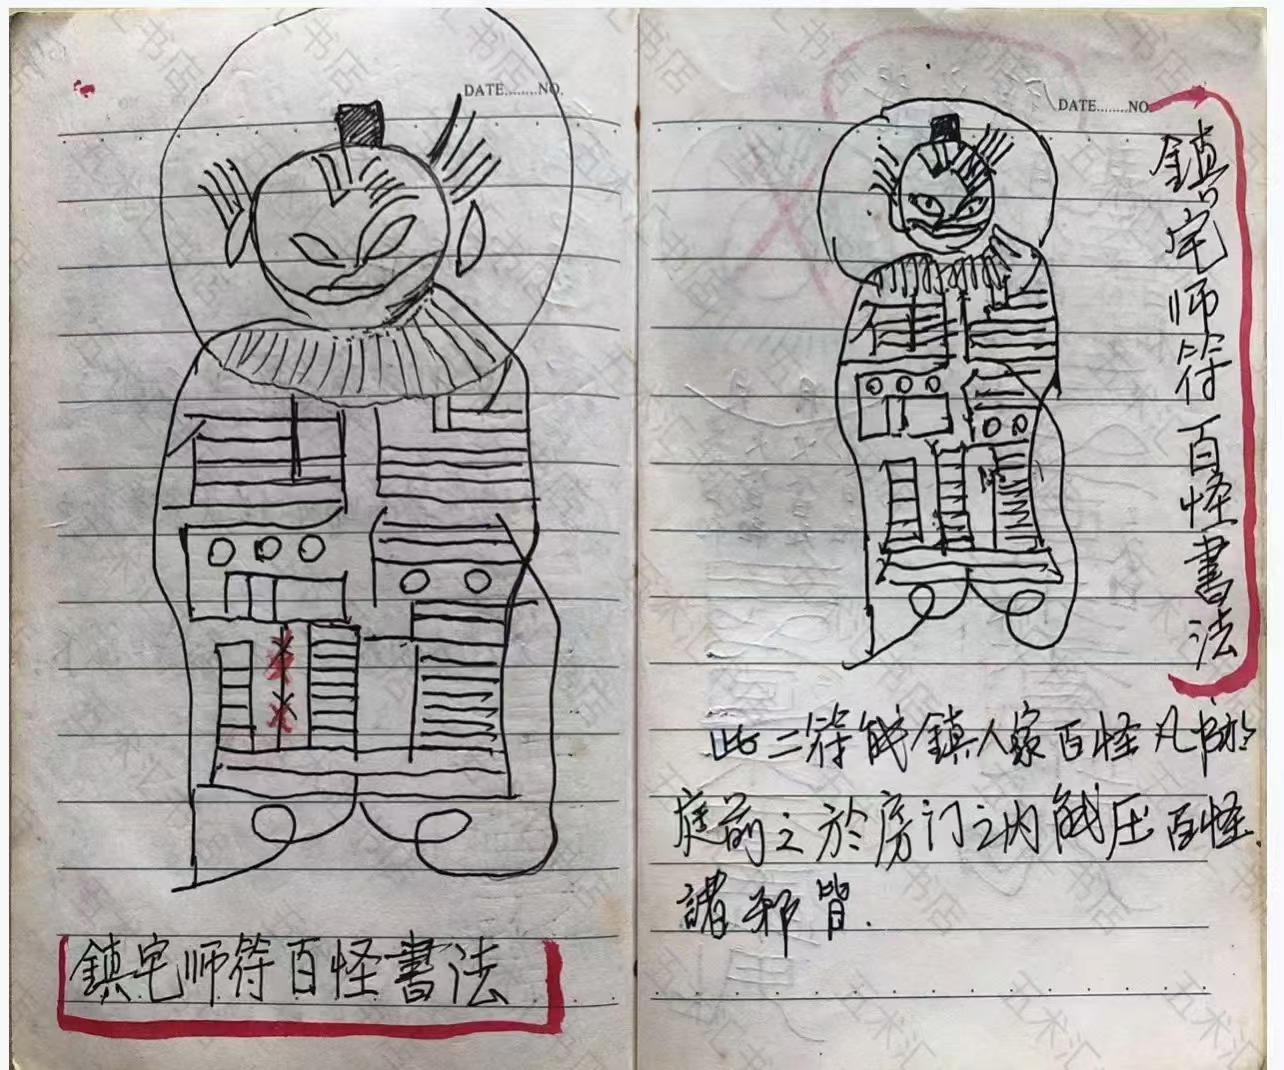 DATE........NO.
鎮宅师符百怪書法
DATE........NO.
鎮宅师符百怪書法
此二符能鎮人家百怪凡
庭前之於房门之内能压百怪.
諸邪皆.
五术汇书店